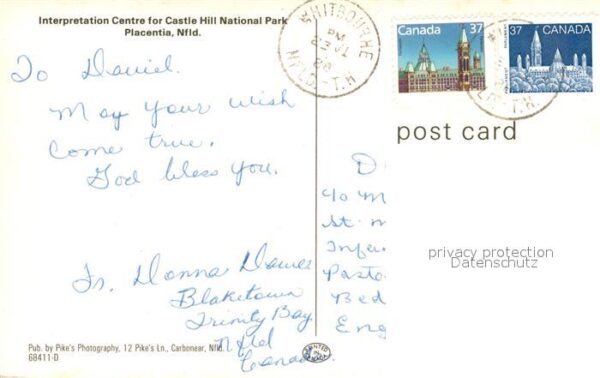 Interpretation Centre for Castle Hill National Park
Placentia, Nfld.
WHITBOURNE
PM
NFLD. T.N.
Canada 37
37 CANADA
post card
To Daniel.
May your wish
come true.
God bless you.
Fr. Donna Dawe
Blaketown
Trinity Bay
Nfld
Canada
D
c/o M
St. M
Infer
Pasto
Bed
Eng
privacy protection
Datenschutz
Pub. by Pike's Photography, 12 Pike's Ln., Carbonear, Nfld.
68411-D